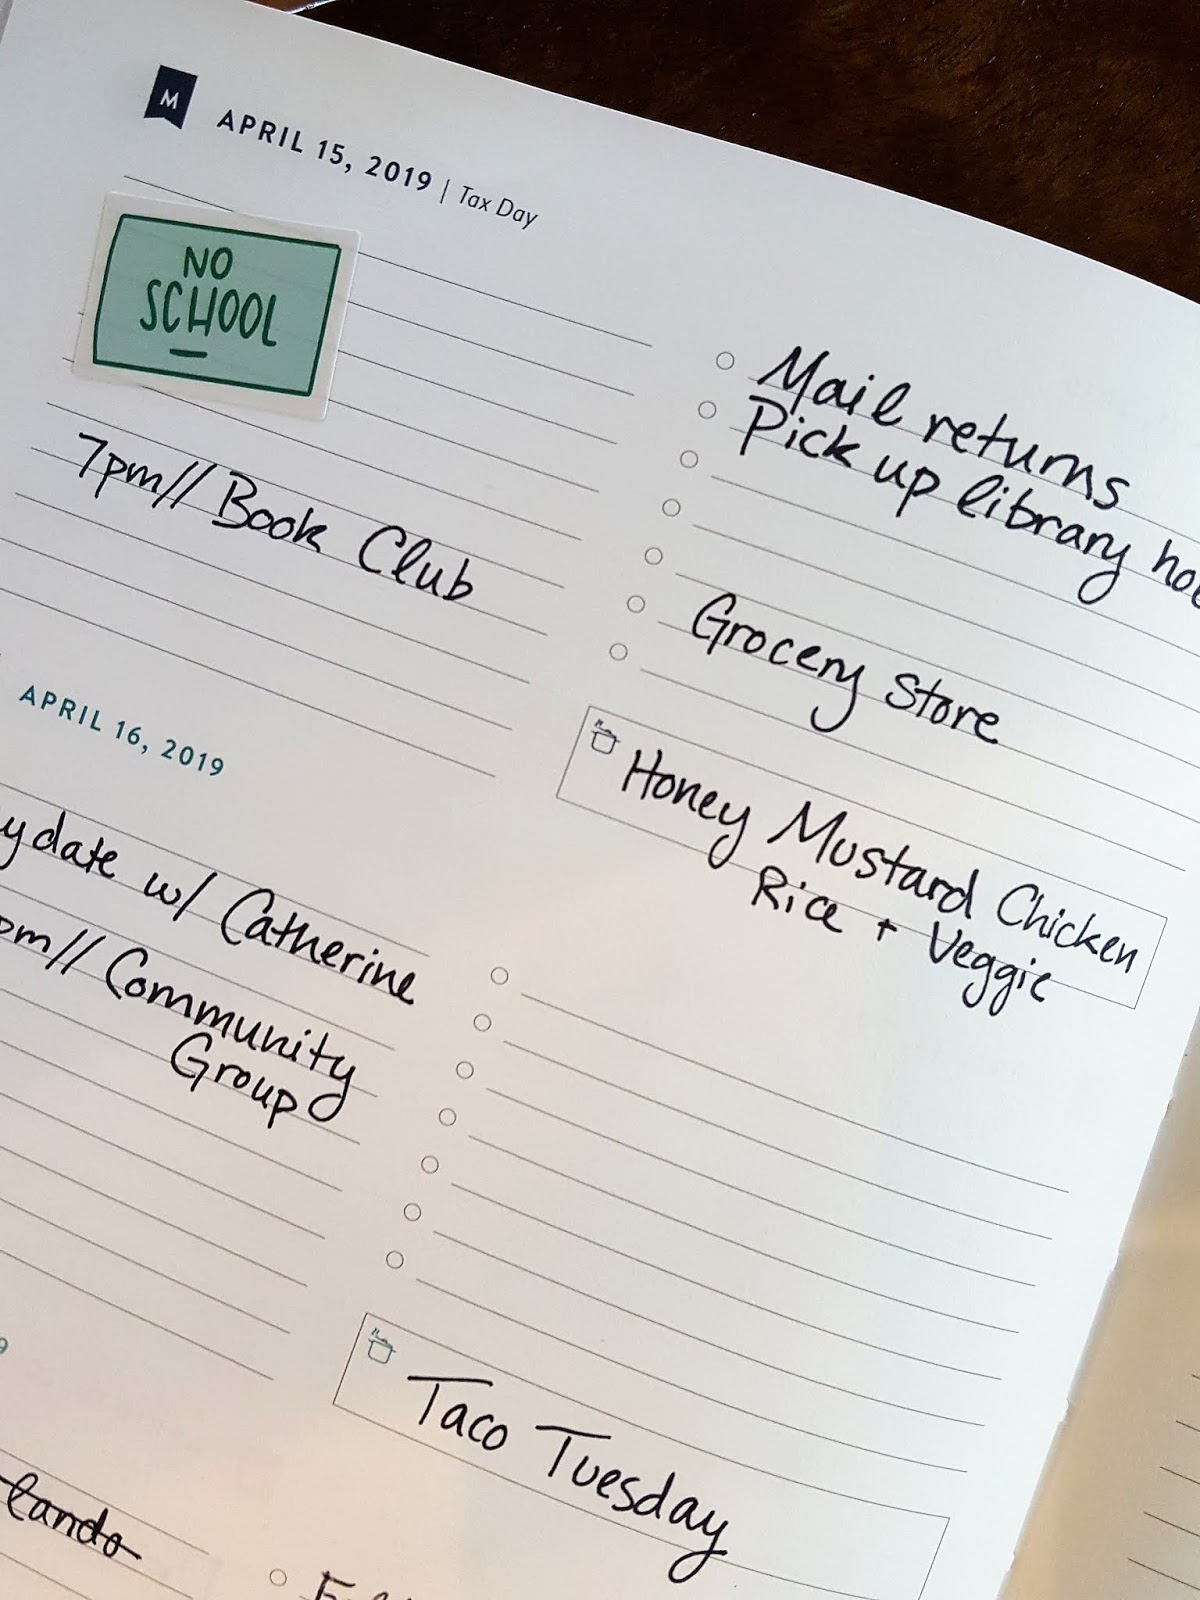 M
APRIL 15, 2019 | Tax Day
NO
SCHOOL
7pm// Book Club
Mail returns
Pick up library
Grocery Store
Honey Mustard Chicken
Rice + Veggie
APRIL 16, 2019
w/ Catherine
Community
Group
Taco Tuesday